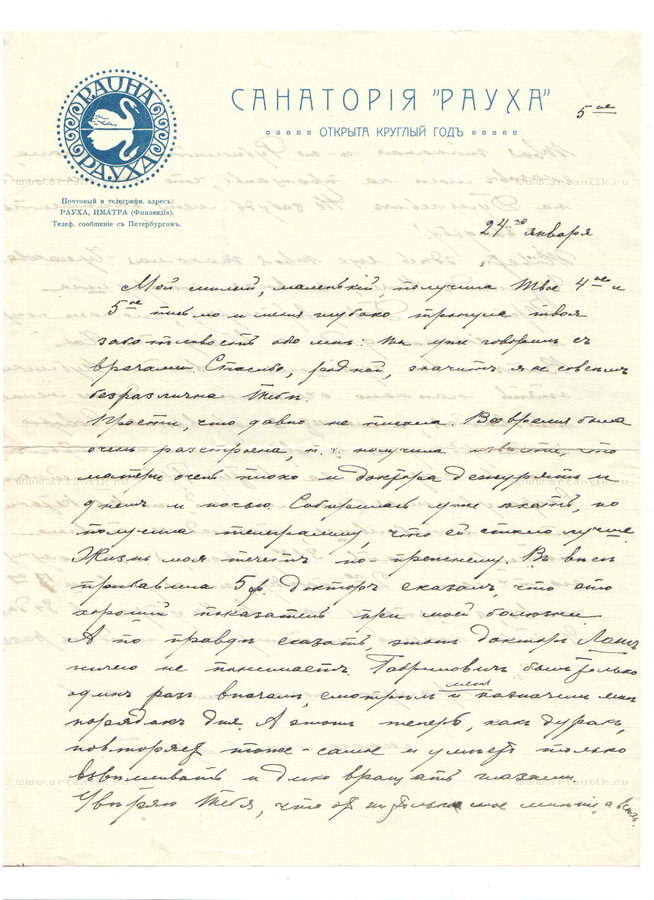 RAUHA
РАУХА
САНАТОРІЯ "РАУХА"
ОТКРЫТА КРУГЛЫЙ ГОДЪ
5 ое
Почтовый и телеграфн. адресъ:
РАУХА, ИМАТРА (Финляндія).
Телеф. сообщеніе съ Петербургомъ.
24 го января
Мой милый, маленькій, получила Твое 4 ое и
5 ое письмо и меня глубоко тронула твоя
заботливость обо мнѣ: Ты уже говорилъ съ
врачами. Спасибо, родной, значитъ я не совсѣмъ
безразлична Тебѣ.
Прости, что давно не писала. Все время была
очень разстроена, т. к. получила извѣстіе, что
матери очень плохо и доктора дежурятъ и
днемъ и ночью. Собиралась уже ѣхать, но
получила телеграмму, что ей стало лучше.
Жизнь моя течетъ по-прежнему. Въ вѣсѣ
прибавила 5 ф. Докторъ сказалъ, что это
хорошій показатель при моей болѣзни.
А по правдѣ сказать, этотъ докторъ
ничего не понимаетъ. Гавриловичъ былъ только
одинъ разъ вначалѣ, смотрѣлъ меня и назначилъ мнѣ
порядокъ дня. А этотъ теперь, какъ дуракъ,
повторяетъ тоже-самое и умѣетъ только
выстукивать и дико вращать глазами.
Увѣряю Тебя, что это не только мое мнѣніе, а всѣхъ.
www.artantik.ru